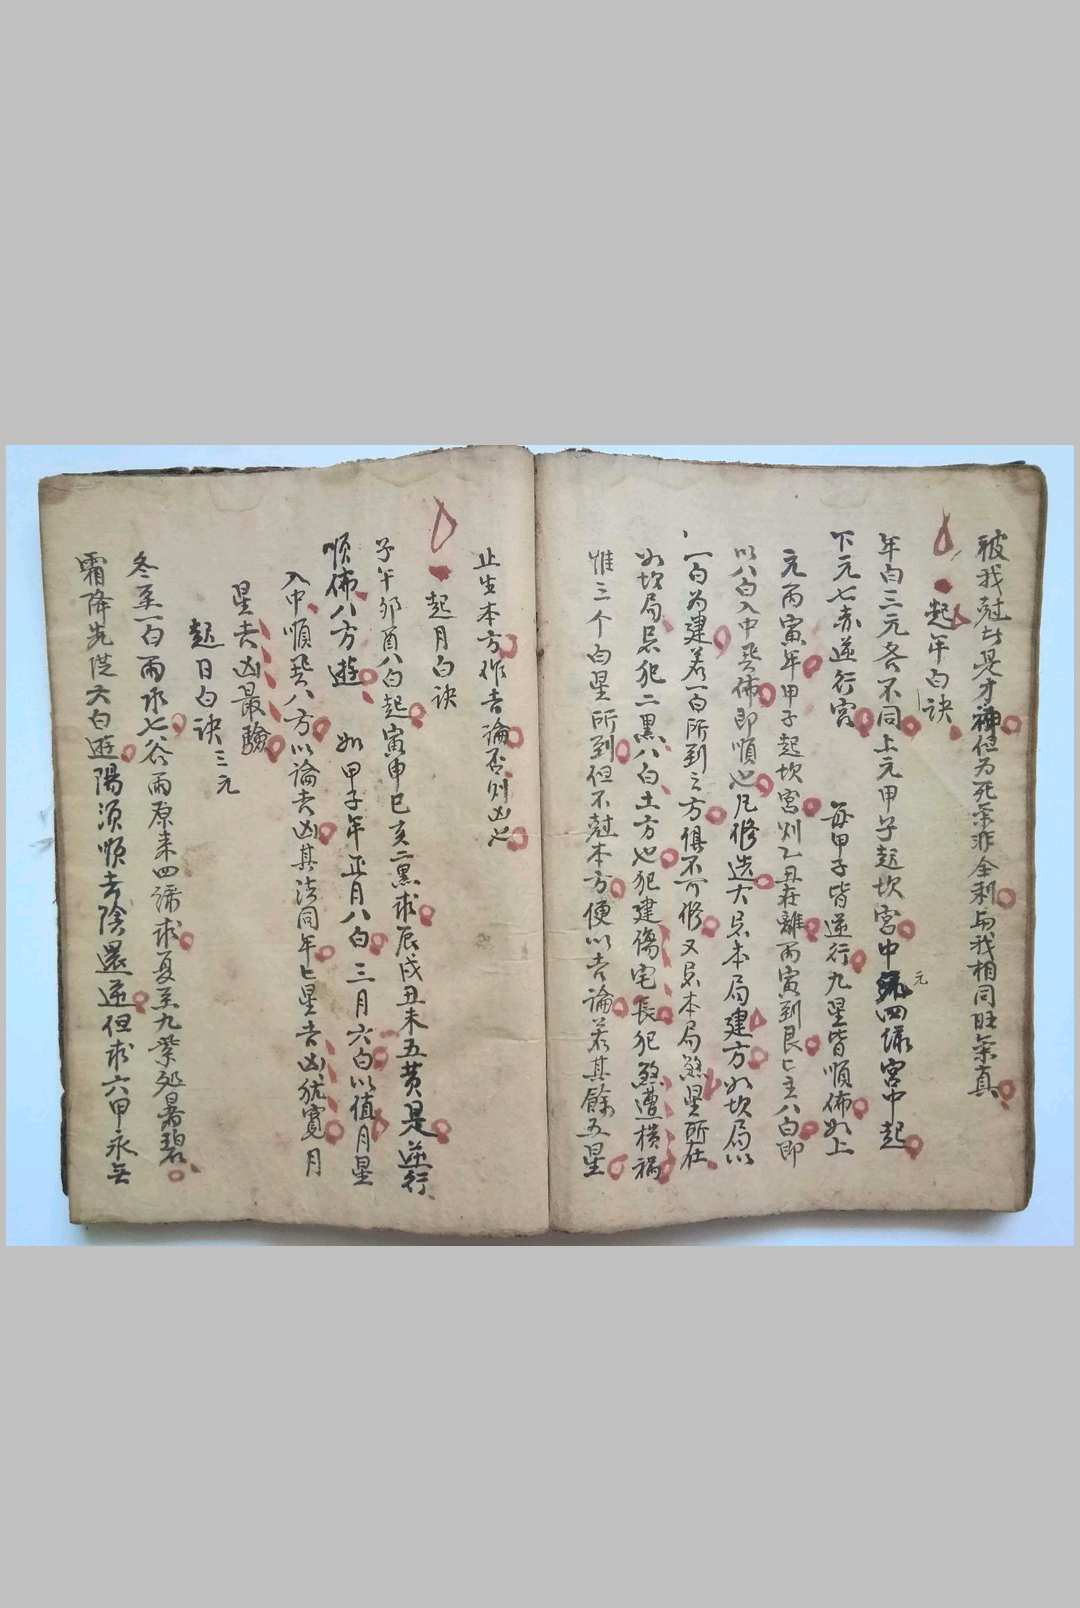 被我尅者是才神但为死气非全利与我相同旺气真
一起年白訣
年白三元各不同上元甲子起坎宮中元四綠宮中起
下元七赤逆行宮 每甲子皆逆行九星皆順佈如上
元丙寅年甲子起坎宮則乙丑在離丙寅到艮七主八白即
以八白入中飛佈即順也凡修造大忌本局建方如坎局以
一白为建若一白所到之方俱不可修又忌本局煞星所在
如坎局忌犯二黑八白土方也犯建傷宅長犯煞遭横禍
惟三个白星所到但不尅本方便以吉論若其餘五星
止生本方作吉論否則凶也
一起月白訣
子午卯酉八白起寅申巳亥二黑求辰戌丑未五黄是逆行
順佈八方遊 如甲子年正月八白三月六白以值月星
入中順飛八方以論吉凶其法同年七星吉凶犹寬月
星吉凶最驗
起日白訣三元
冬至一白雨水七谷雨原來四綠求夏至九紫処暑碧
霜降先従六白遊陽須順去陰還逆但求六甲永無